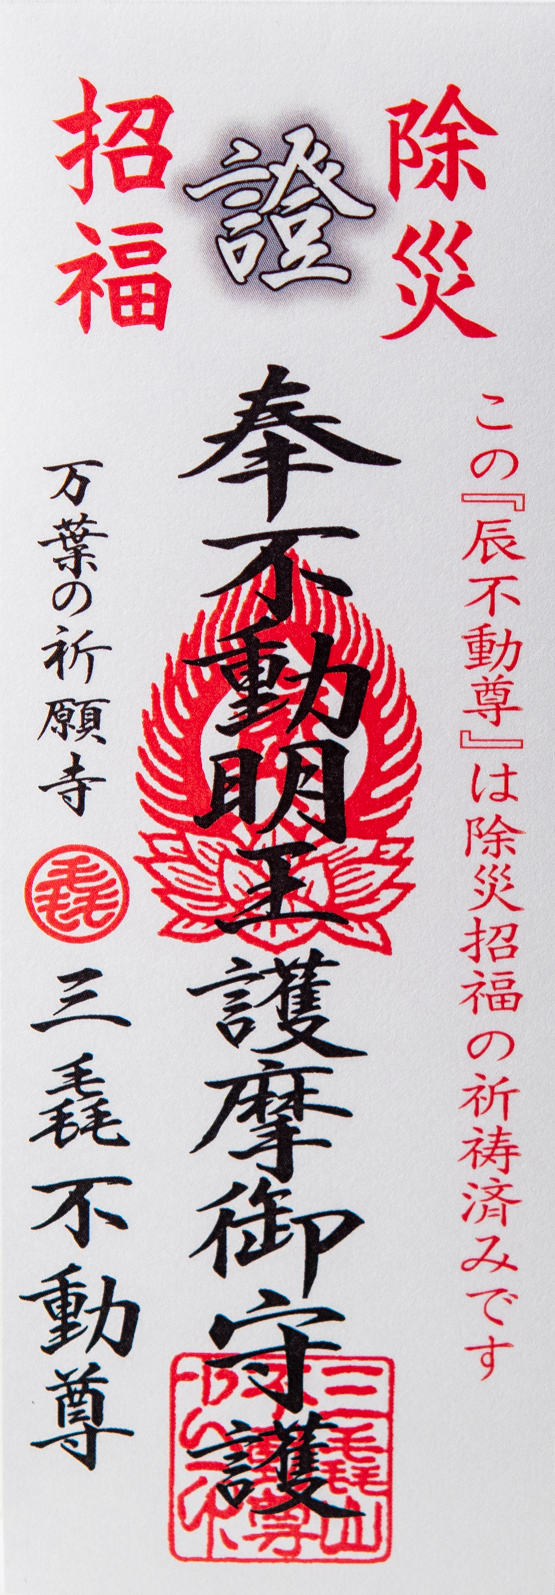 除災
證
招福
この『辰不動尊』は除災招福の祈祷済みです
奉不動明王護摩御守護
万葉の祈願寺
毳
三毳不動尊
三毳山